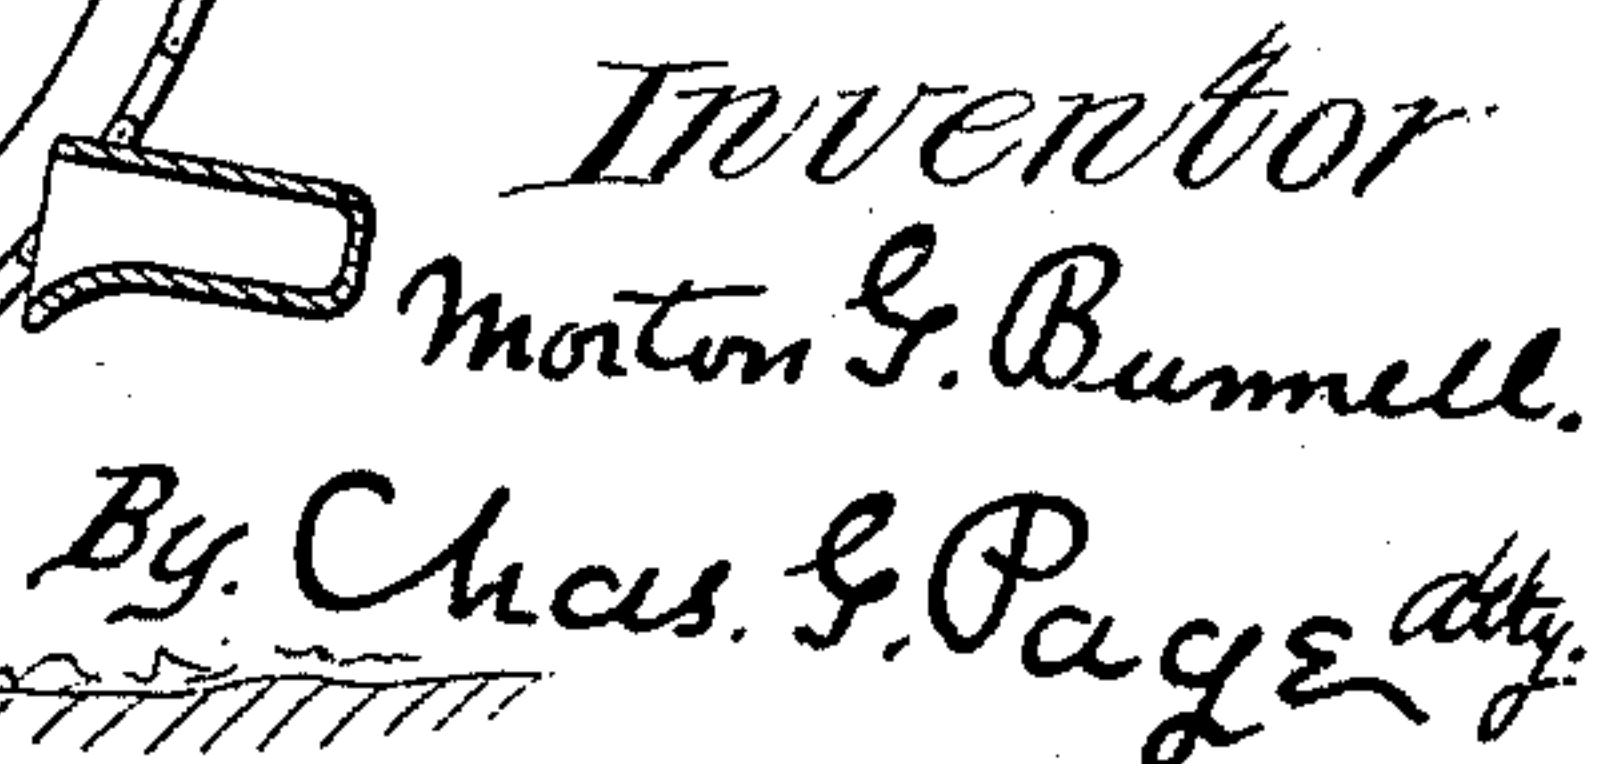 Inventor
Morton G. Bunnell.
By. Chas. G. Page Atty.